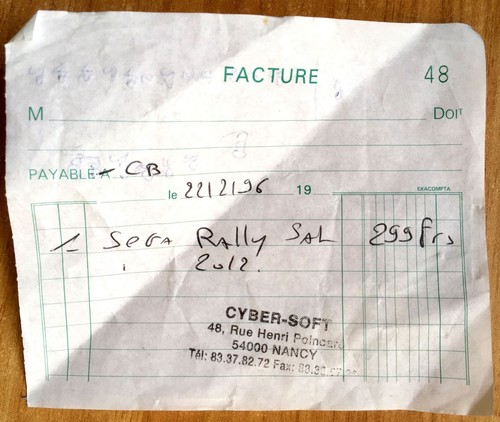 FACTURE 48
M DOIT
PAYABLE A CB
le 22/2/96 19
EXACOMPTA
1 SEGA RALLY SAL 299 frs
2012.
CYBER-SOFT
48, Rue Henri Poincaré
54000 NANCY
Tél: 83.37.82.72 Fax: